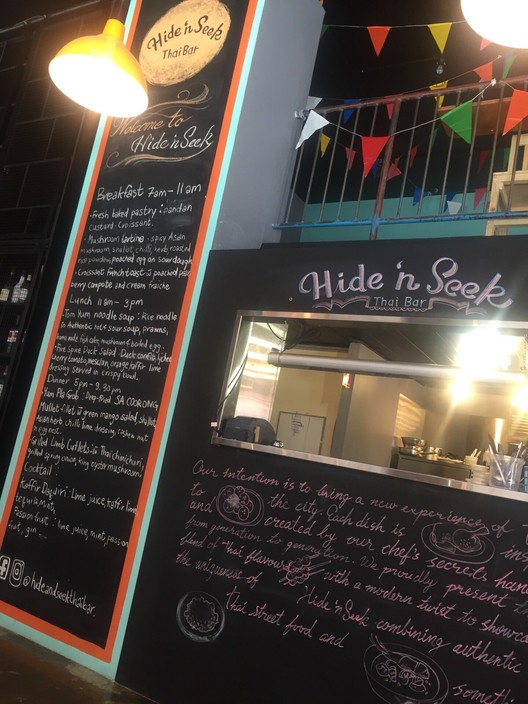 Hide 'n Seek
Thai Bar
Welcome to
Hide 'n Seek
Breakfast 7am - 11am
- Fresh baked pastry : Pandan
Custard Croissant.
- Mushroom tartine - spicy Asian
mushroom, shallot, chilli, herb, roasted
rice powder, poached egg on sourdough
- Croissant French toast w poached pear
berry compote and creme fraiche
Lunch 11am - 3pm
- Tom Yum noodle soup : Rice noodle
in Authentic hot & sour soup, prawns,
home made fish cake, mushroom & boiled egg.
- Five Spice Duck Salad : Duck confit, lychee
cherry tomato, mesclun, orange, kaffir lime
dressing served in crispy bowl.
Dinner 5pm - 9.30pm
- Yum Pla Grob : Deep-fried SA COORONG
Mullet fillets w green mango salad, shallot,
Asian herb, chilli lime dressing, cashew nut
- Grilled Lamb Cutlets w Thai chimichuri,
grilled spring onion, king oyster mushroom,
Cocktail
Kaffir Daquiri : Lime juice, kaffir lime,
Passionfruit : lime juice, mint, passion
fruit, gin
@hideandseekthaibar
Hide 'n Seek
Thai Bar
Our intention is to bring a new experience of
to the city. Each dish is
created by our chef's secrets
from generation to generation. We proudly present
blend of Thai flavours with a modern twist to
the uniqueness of Hide 'n Seek combining authentic
Thai street food and